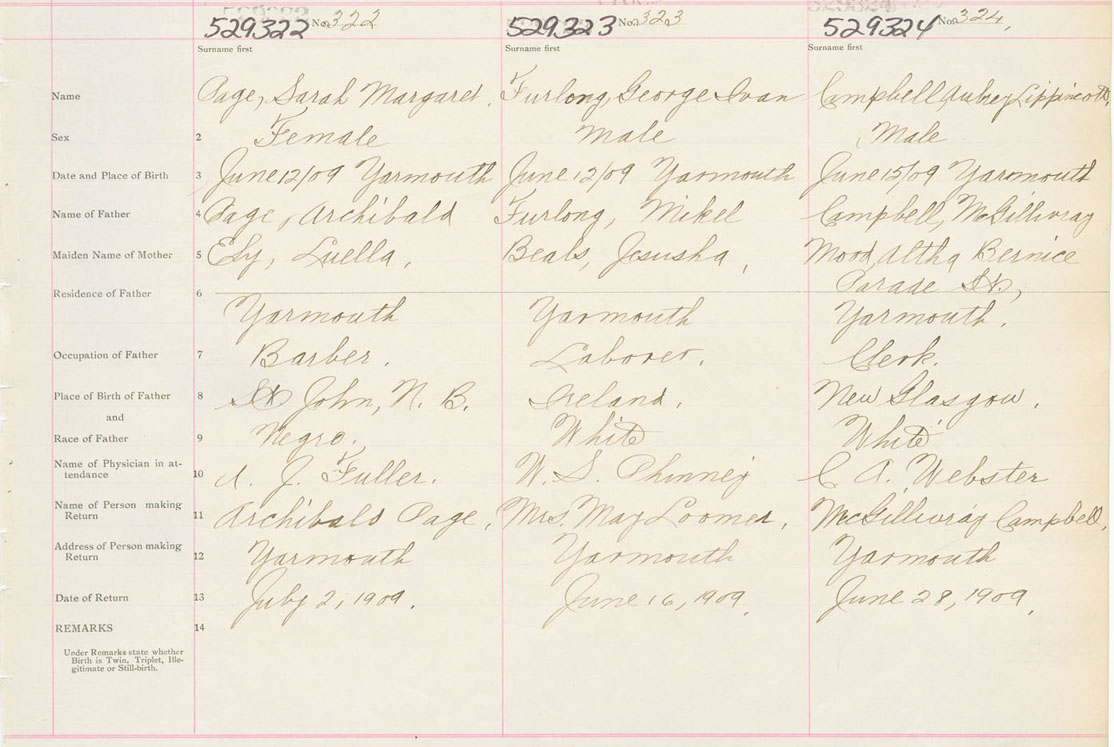 529322 No. 322 529323 No. 323 529324 No. 324,
Surname first Surname first Surname first
Name Page, Sarah Margaret. Furlong, George Ivan Campbell Aubrey Lippincott,
Sex 2 Female Male Male
Date and Place of Birth 3 June 12/09 Yarmouth June 12/09 Yarmouth June 15/09 Yarmouth
Name of Father 4 Page, Archibald Furlong, Mikel Campbell, McGillivray
Maiden Name of Mother 5 Ely, Luella, Beals, Jesusha, Mood, Altha Bernice
Residence of Father 6 Parade St,
Yarmouth Yarmouth Yarmouth.
Occupation of Father 7 Barber. Laborer. Clerk.
Place of Birth of Father 8 St John, N. B. Ireland. New Glasgow.
and
Race of Father 9 Negro. White White
Name of Physician in at-
tendance 10 A. J. Fuller. W. S. Phinney C A. Webster
Name of Person making
Return 11 Archibald Page, Mrs. May Loomer, McGillivray Campbell,
Address of Person making
Return 12 Yarmouth Yarmouth Yarmouth
Date of Return 13 July 2, 1909. June 16, 1909, June 28, 1909,
REMARKS 14
Under Remarks state whether
Birth is Twin, Triplet, Ille-
gitimate or Still-birth.